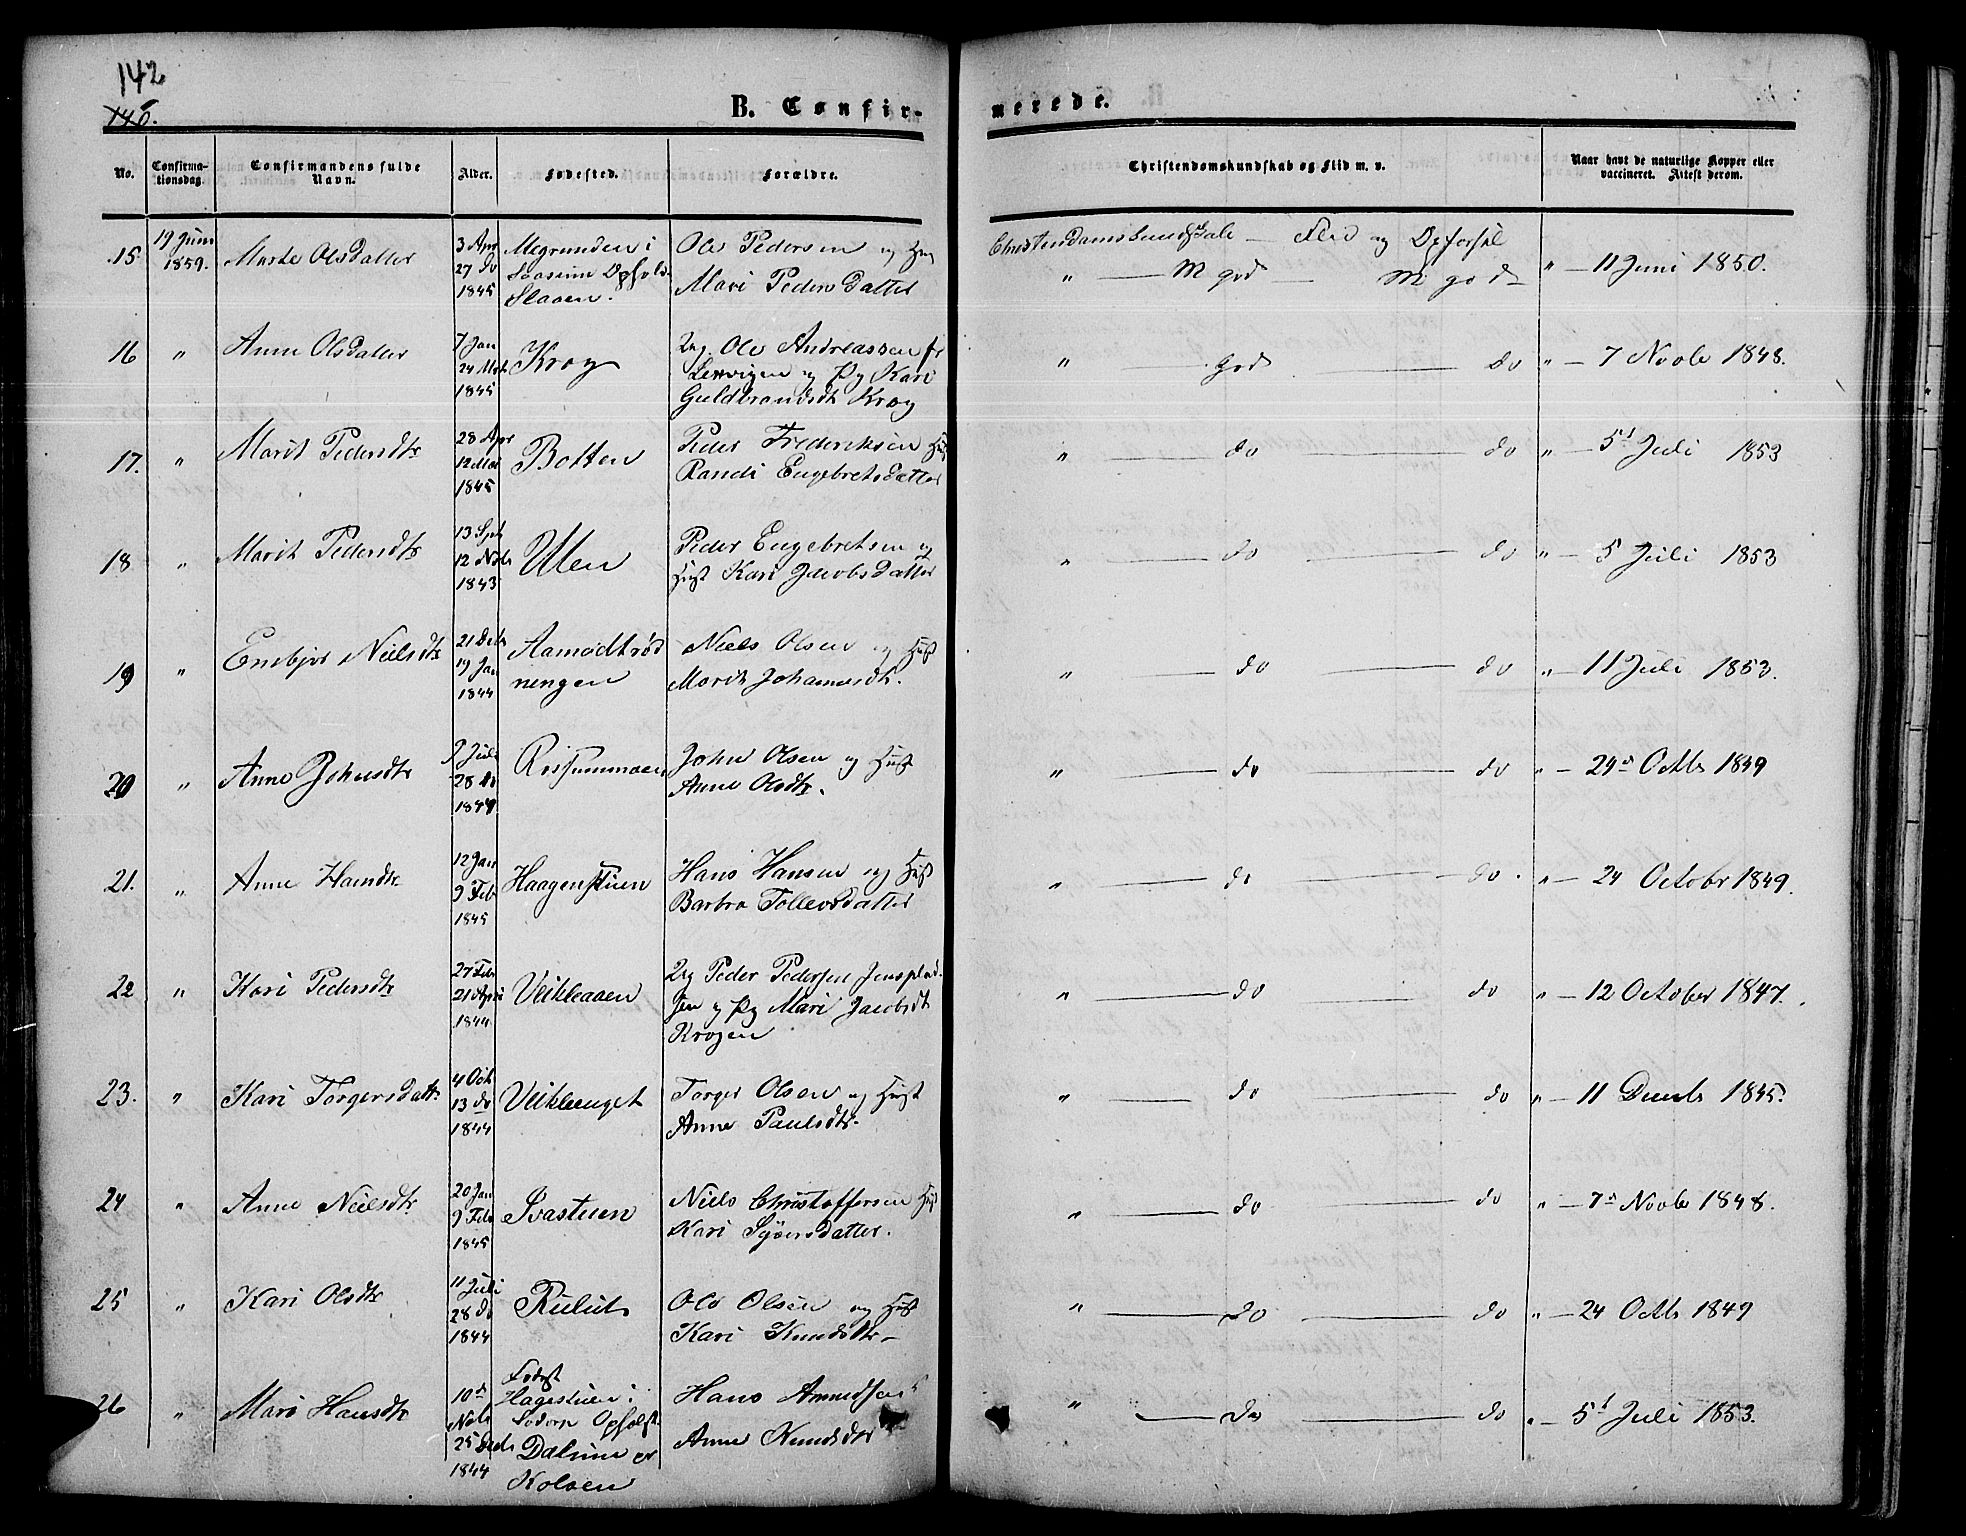 142
146.
B. Confir-
merede.
No.
Confirma-
tionsdag.
Confirmandens fulde
Navn.
Alder.
Fødested.
Forældre.
Christendomskundskab og Flid m. v.
Naar havt de naturlige Kopper eller
vaccineret. Attest derom.
15. 19 Juni 1859. Marte Olsdatter
3 Apr
27 do
1845
Ole Pedersen og
Mari Peders Datter
Christendamskundskab — Flid og Opførsel
" — M god — M god " — 11 Juni 1850.
16 " Anne Olsdatter
7 Jan
1845
Krog
Ole Andreassen
og Pg Kari
Guldbrandsdt Krog
" god — do " — 7 Novbr 1848.
17. " Marit Pedersdtr
28 Apr
12 Mai
1845
Botten
Peder Frederiksen Hust
Randi Engebretsdatter
" do — do " — 5t Juli 1853
18 " Marit Pedersdtr
13 Spt
12 Nvb
1843
Ulen
Peder Engebretsen og
Hust Kari Jacobsdatter
" do — do " — 5 Juli 1853
19 " Nielsdtr
21 Decbr
19 Jan
1844
Aamodtrød
ningen
Niels Olsen og Hust
Marit Johannesdtr.
" — do — do " — 11 Juli 1853.
20 " Anne Johnsdtr
Juli
28 do
1844
John Olsen og Hust
Anne Olsdtr.
" — do — do " — 24de Octbr 1849
21. " Anne Hansdtr
12 Jan
9 Feb
1845
Haagenstuen
Hans Hansen og Hust
Barbra Tollevsdatter
" — do — do " — 24 Octobr 1849.
22 " Kari Pedersdtr
27 Feb
21 April
1844
Veikleaaen
Peder Pedersen Jensplad-
sen og Pg Mari Jacobsdt
Krogen
" — do — do " — 12 October 1847.
23. " Kari Torgersdatter
4 Oct
13 do
1844
Veiklenget
Torger Olsen og Hust
Anne Paulsdtr.
" — do — do " — 11 Decmbr 1845.
24 " Anne Nielsdtr
20 Jan
9 Feb
1845
Svastuen
Niels Christoffersen Hust
Kari Syversdatter.
" — do — do " — 7de Novbr 1848.
25 " Kari Olsdtr
11 Juli
28 do
1844
Ole Olsen og Hust
Kari Knudsdtr —
" — do — do " — 24 Octbr 1849
26 " Mari Hansdtr
10de
Nvbr
25 Decbr
1844
Født
Hagestuen i
Sødorp Opholdst
Kolsen
Hans
Anne Knudsdtr
" — do — do " — 5t Juli 1853.